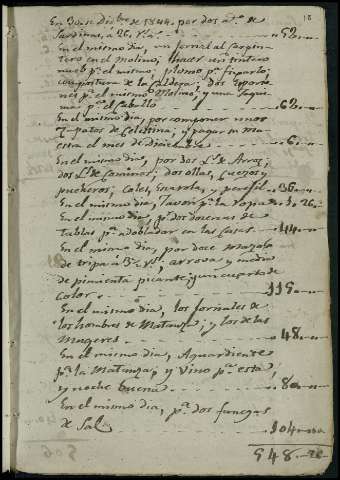 18
En 30 de dizbre de 1844. por dos a.s de
Sardinas, à 26. rs .. 52
En el mismo dia, un jornal al Carpin-
tero en el Molino; hacer un tintero
nuebo pa el mismo; plomo pa fijarlo;
compostura de la caldera; dos
pa el mismo Molino; y una
pa el Caballo .. 62
En el mismo dia, por componer unos
Zapatos de Celestina; y pagar su Ma-
estra el mes de Diciembre .. 6
En el mismo dia, por dos Ls. de Arroz;
dos Ls. de dos ollas,
pucheros; Coles, Escarola, y perejil .. 36
En el mismo dia, Javon pa la Ropa .. 10. 26
En el mismo dia, pr. dos docenas de
tablas pa adobladar en las Casas .. 144
En el mismo dia, por doce Mazos
de tripa à 3 rs, arrova y media
de pimienta picante; y un cuarto de
Color .. 115
En el mismo dia, los jornales de
los hombres de Matanza; y los de las
Mugeres .. 48
En el mismo dia, Aguardiente
pa la Matanza; y Vino pa esta
y noche buena .. 80
En el mismo dia, pr. dos fanegas
de Sal .. 104
948 26